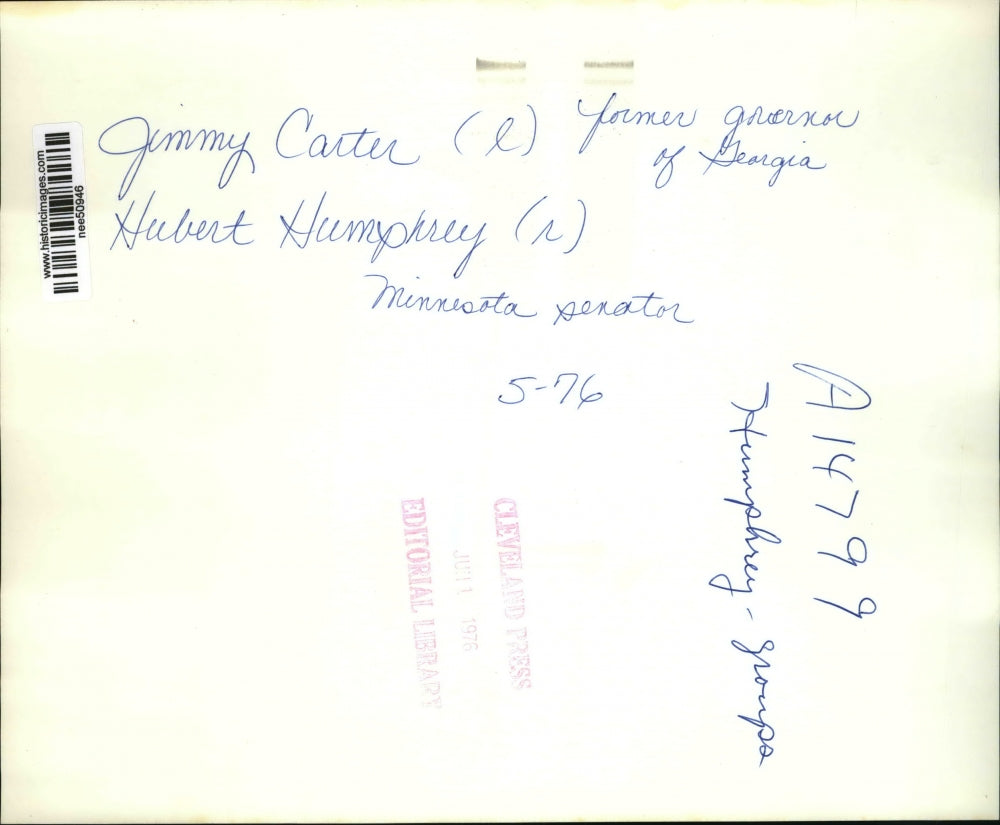 Jimmy Carter (l) former governor
of Georgia
Hubert Humphrey (r)
Minnesota senator
5-76
www.historicimages.com
nee50946
A14799
Humphrey - groups
CLEVELAND PRESS
JUN 1 1976
EDITORIAL LIBRARY